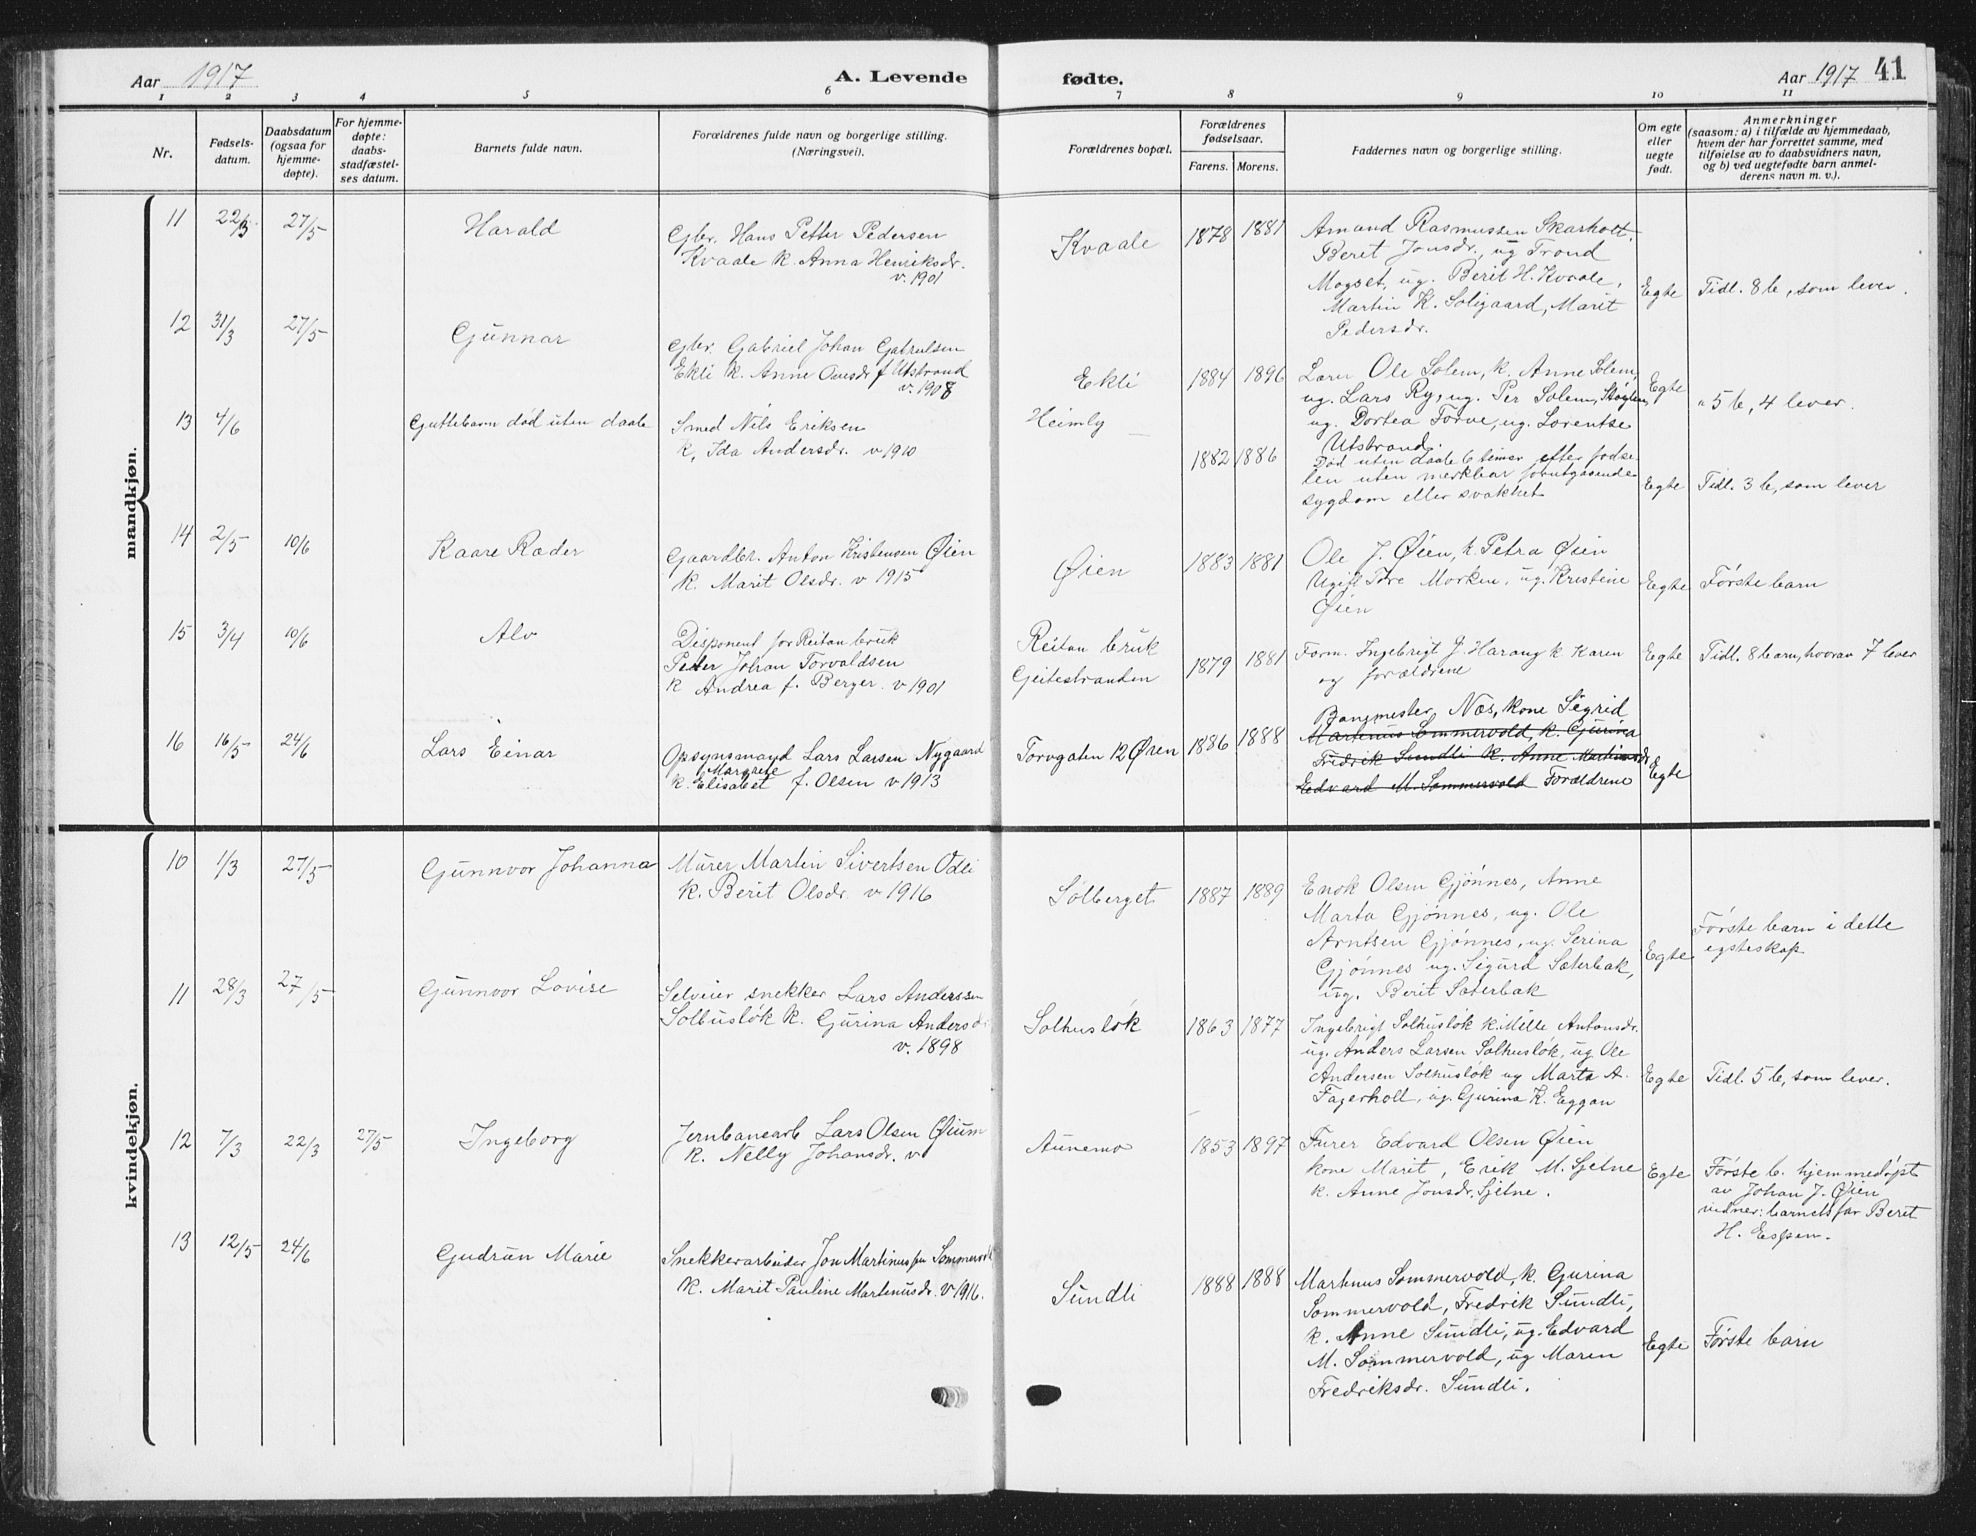 Aar 1917
A. Levende
fødte.
Aar 1917
41
1 2 3 4 5 6 7 8 9 10 11
Nr.
Fødsels-
datum.
Daabsdatum
(ogsaa for
hjemme-
døpte).
For hjemme-
døpte:
daabs-
stadfæstel-
ses datum.
Barnets fulde navn.
Forældrenes fulde navn og borgerlige stilling.
(Næringsvei).
Forældrenes bopæl.
Forældrenes
fødselsaar.
Farens. Morens.
Faddernes navn og borgerlige stilling.
Om egte
eller
uegte
født.
Anmerkninger
(saasom: a) i tilfælde av hjemmedaab,
hvem der har forrettet samme, med
tilføielse av to daabsvidners navn,
og b) ved uegtefødte barn anmel-
derens navn m. v.).
mandkjøn.
11 22/3 27/5 Harald
Gbr. Hans Petter Pedersen
Kvaale k. Anna Henriksdr.
v. 1901
Kvaale 1878 1881
Amund Rasmussen Skarholt.
Beret Jonsdr., ug Trond
Mogset, ug. Berit H. Kvaale,
Martin K. Soligaard, Marit
Pedersdr.
Egte
Tidl. 8 b, som lever.
12 31/3 27/5 Gunnar
Gbr. Gabriel Johan
Ekli k. Anne f Utstrand
v. 1908
Ekli 1884 1896
Lærer Ole Solem, k. Anne Solem,
ug. Lars Ry, ug. Per Solem,
ug. Dortea Forve, ug. Lorentse
Utstrand.
Egte
" 5 b, 4 lever.
13 4/6 Guttebarn død uten daab
Smed Nils Eriksen
k. Ida Andersdr. v 1910
Heimly 1882 1886
Død uten daab 6 timer efter fødse-
len uten merkbar forutgaaende
sygdom eller svakhet
Egte
Tidl. 3 b, som lever
14 2/5 10/6 Kaare Ræder
Gaardbr. Anton Kristensen Øien
k. Marit Olsdr. v 1915
Øien 1883 1881
Ole J. Øien, k. Petra Øien
Ugift Tore Morken, ug. Kristine
Øien
Egte
Første barn
15 3/4 10/6 Alv
Disponent for Reitan bruk
Peter Johan Torvaldsen
k Andrea f. Berger. v 1901
Reitan bruk
Geitestranden
1879 1881
Form. Ingebrigt J. Harang k Karen
og forældrene
Egte
Tidl. 8 barn, hvorav 7 lever
16 16/5 24/6 Lars Einar
Opsynsmand Lars Larsen Nygaard
Margrete
k. Elisabet f. Olsen v 1913
Torvgaten 12 Øren 1886 1888
Banemester Næs, kone Sigrid
Martenus Sommervold, k. Gurina
Fredrik Sundli k. Anne Martinusdr
Edvard M. Sommervold Forældrene
Egte
kvindekjøn.
10 1/3 27/5 Gunnvor Johanna
Murer Martin Sivertsen Ødli
k. Berit Olsdr. v 1916
Solberget 1887 1889
Enok Olsen Gjønnes, Anne
Marta Gjønnes, ug. Ole
Arntsen Gjønnes, ug. Serina
Gjønnes ug. Sigurd Sæterbak,
ug. Berit Sæterbak
Egte
Første barn i dette
egteskap
11 28/3 27/5 Gunnvor Lovise
Selveier snekker Lars Anderssen
Solbusløk k. Gurina Andersdr
v. 1898
Solhusløk 1863 1877
Ingebrigt Solhusløk k. Mille Antonsdr.
ug. Anders Larsen Solhusløk, ug Ole
Andersen Solhusløk ug Marta A.
Fagerholt, ug. Gurina K. Eggan
Egte
Tidl. 5 b, som lever.
12 7/3 22/3 27/5 Ingeborg
Jernbanearb Lars Olsen Øium
k. Nelly Johansdr. v
Aunemo 1853 1897
Furer Edvard Olsen Øien
kone Marit, Erik M. Sjetne
k. Anne Jonsdr. Sjetne.
Egte
Første b. hjemmedøpt
av Johan J. Øien
vidner: barnets far Beret
H. Espen.
13 12/5 24/6 Gudrun Marie
Snekkerarbeider Jon Martinussen Sommervold
k. Marit Pauline Martenusdr. v 1916.
Sundli 1888 1888
Martenus Sommervold, k. Gurina
Sommervold, Fredrik Sundli,
k. Anne Sundli, ug. Edvard
M. Sommervold, ug Maren
Fredriksdr. Sundli.
Egte
Første barn